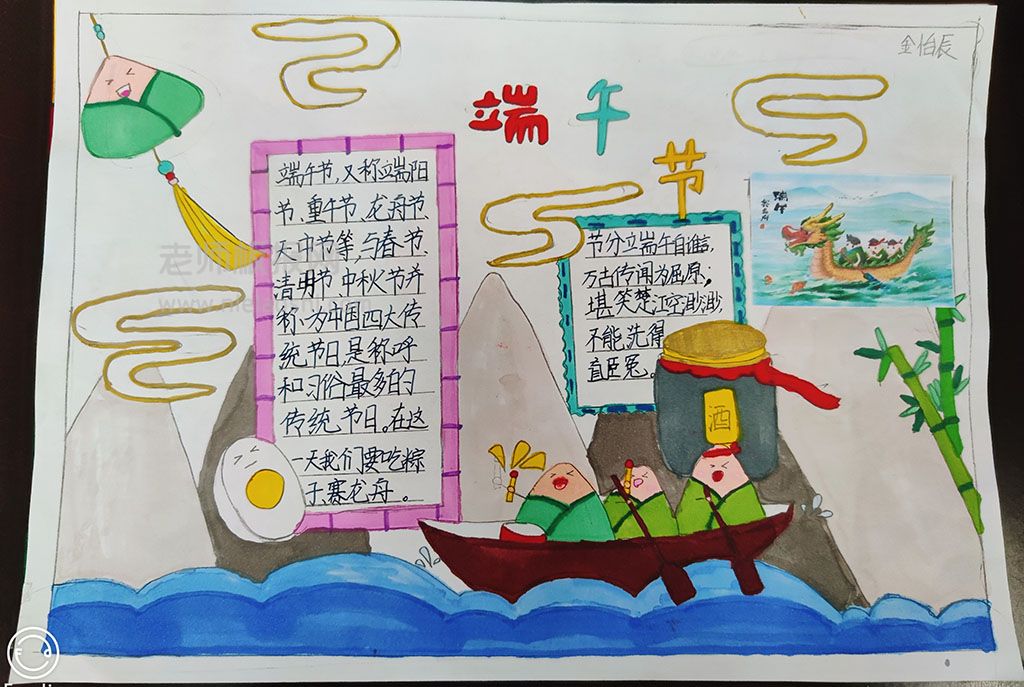 金怡辰
端午
节
端午节,又称端阳
节、重午节、龙舟节、
天中节等,与春节、
清明节、中秋节并
称为中国四大传
统节日是称呼
和习俗最多的
传统节日。在这
一天我们要吃粽
子、赛龙舟。
节分立端午自谁言,
万古传闻为屈原;
堪笑楚江空渺渺,
不能洗得
直臣冤。
端午
酒